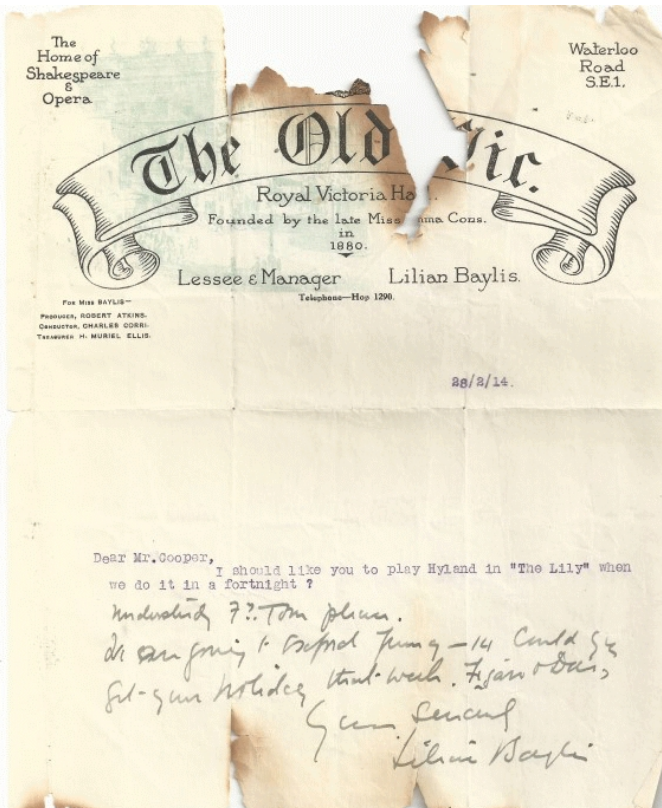 The
Home of
Shakespeare
&
Opera
Waterloo
Road
S.E.1.
The Old Vic.
Royal Victoria Ha
Founded by the late Miss mma Cons.
in
1880.
Lessee & Manager Lilian Baylis.
Telephone—Hop 1290.
For Miss BAYLIS—
Producer, ROBERT ATKINS.
Conductor, CHARLES CORRI.
Treasurer H. MURIEL ELLIS.
28/2/14.
Dear Mr.Cooper,
I should like you to play Hyland in "The Lily" when
we do it in a fortnight ?
understudy Tom please.
going to Oxford 14 Could you
get your holiday that week. Figaro &
Yours sincerely
Lilian Baylis